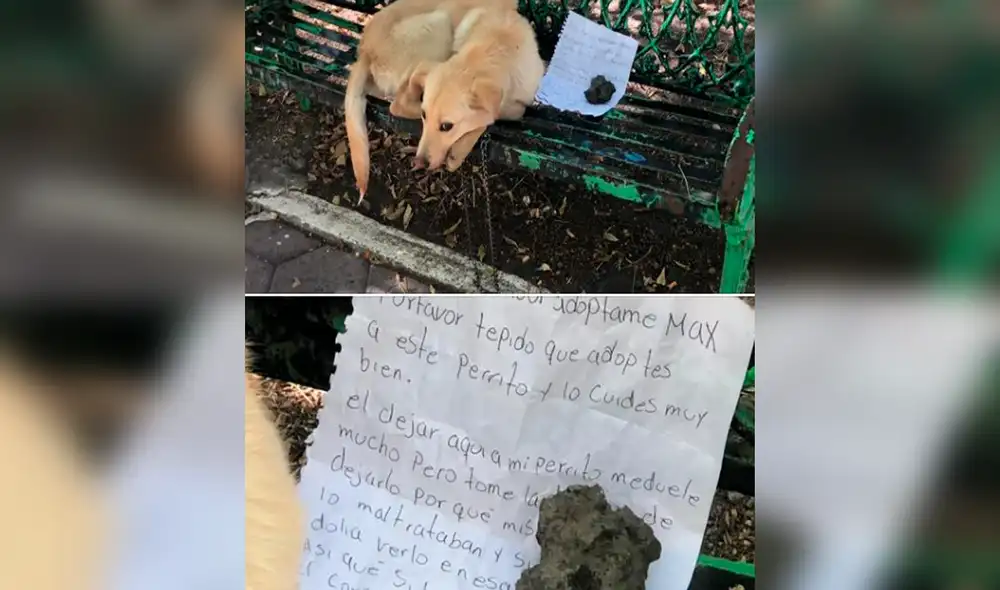 adoptame MAX
Porfavor tepido que adoptes
a este Perrito y lo Cuides muy
bien.
el dejar aqui a mi perrito meduele
mucho Pero tome la de
dejarlo Por qué mis
lo maltrataban y
dolia verlo en esa
Asi qué